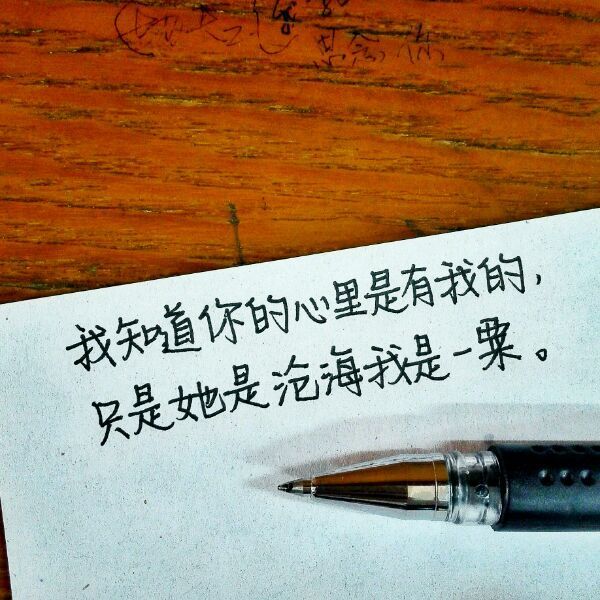 我知道你的心里是有我的，
只是她是沧海我是一粟。